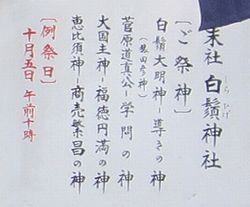 末社 白鬚神社
しら ひげ
【ご祭神】
白鬚大明神－導きの神
(猿田彦神)
菅原道真公－学問の神
大国主神－福徳円満の神
恵比須神－商売繁昌の神
【例祭日】
十月五日 午前十時